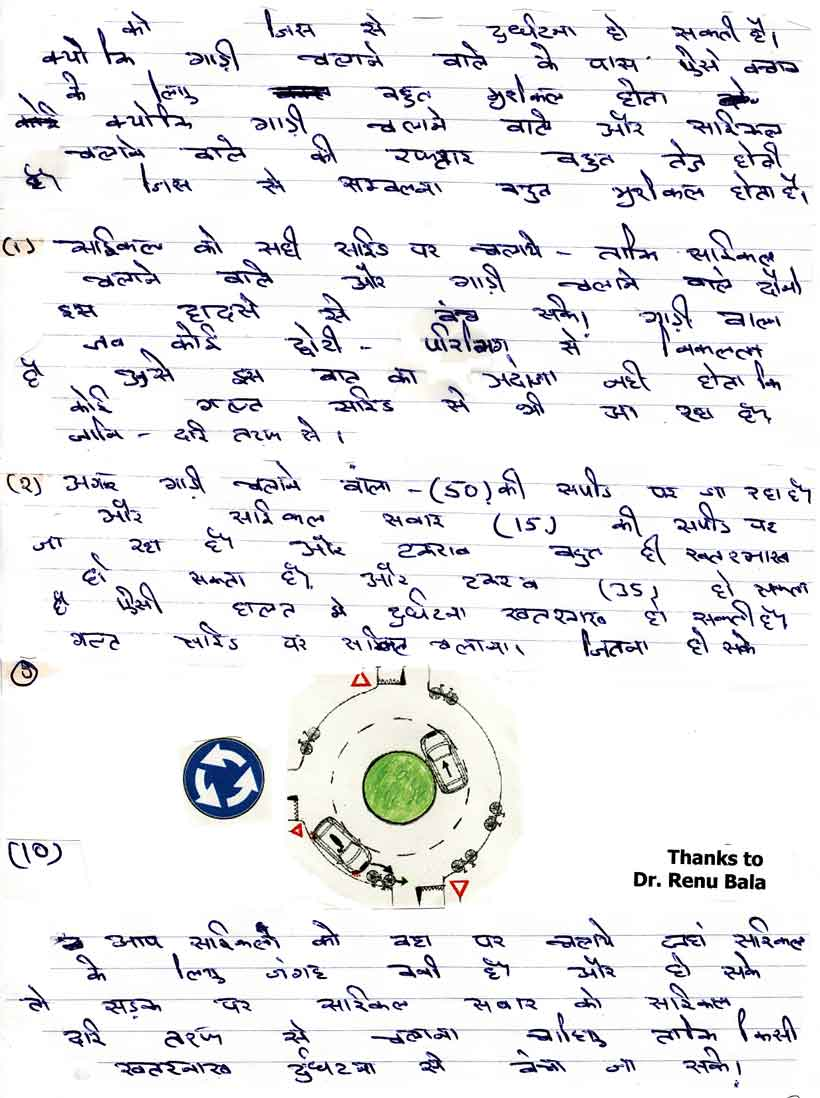 को जिस से दुर्घटना हो सकती है।
क्योकि गाड़ी चलाने वाले के पास ऐसे बचाव
के लिए बहुत मुशकिल होता
क्योकि गाड़ी चलाने वाले और साईकल
चलाने वाले की रफ्तार बहुत तेज होती
है जिस से सम्बलना बहुत मुशकिल होता है।
(1) साईकल को सही साईड पर चलाये - ताकि साईकल
चलाने वाले और गाड़ी चलाने वाले दोनो
इस हादसे से बच सके। गाड़ी वाला
जब कोई छोटी - से निकलता
है उसे इस बात का अदांजा नही होता कि
कोई गल्त साईड से भी आ रहा है
जाकि - दाई तरफ से।
(२) अगर गाड़ी चलाने वाला - (50) की सपीड पर जा रहा है
और साईकल सवार (15) की सपीड पर
जा रहा है और टकराव बहुत ही खतरनाख
हो सकता है और टकराव (35) हो सकता
है ऐसी हालत मे दुर्घटना खतरनाख हो सकती है
गल्त साईड पर साईकल चलाना। जितना हो सके
(10)
Thanks to
Dr. Renu Bala
आप साईकल को वहा पर चलाये जहां साईकल
के लिए जंगह बनी है और हो सके
तो सड़क पर साईकल सवार को साईकल
दाई तरफ से चलाना चाहिए ताकि किसी
खतरनाख दुर्घटना से बचा जा सके।